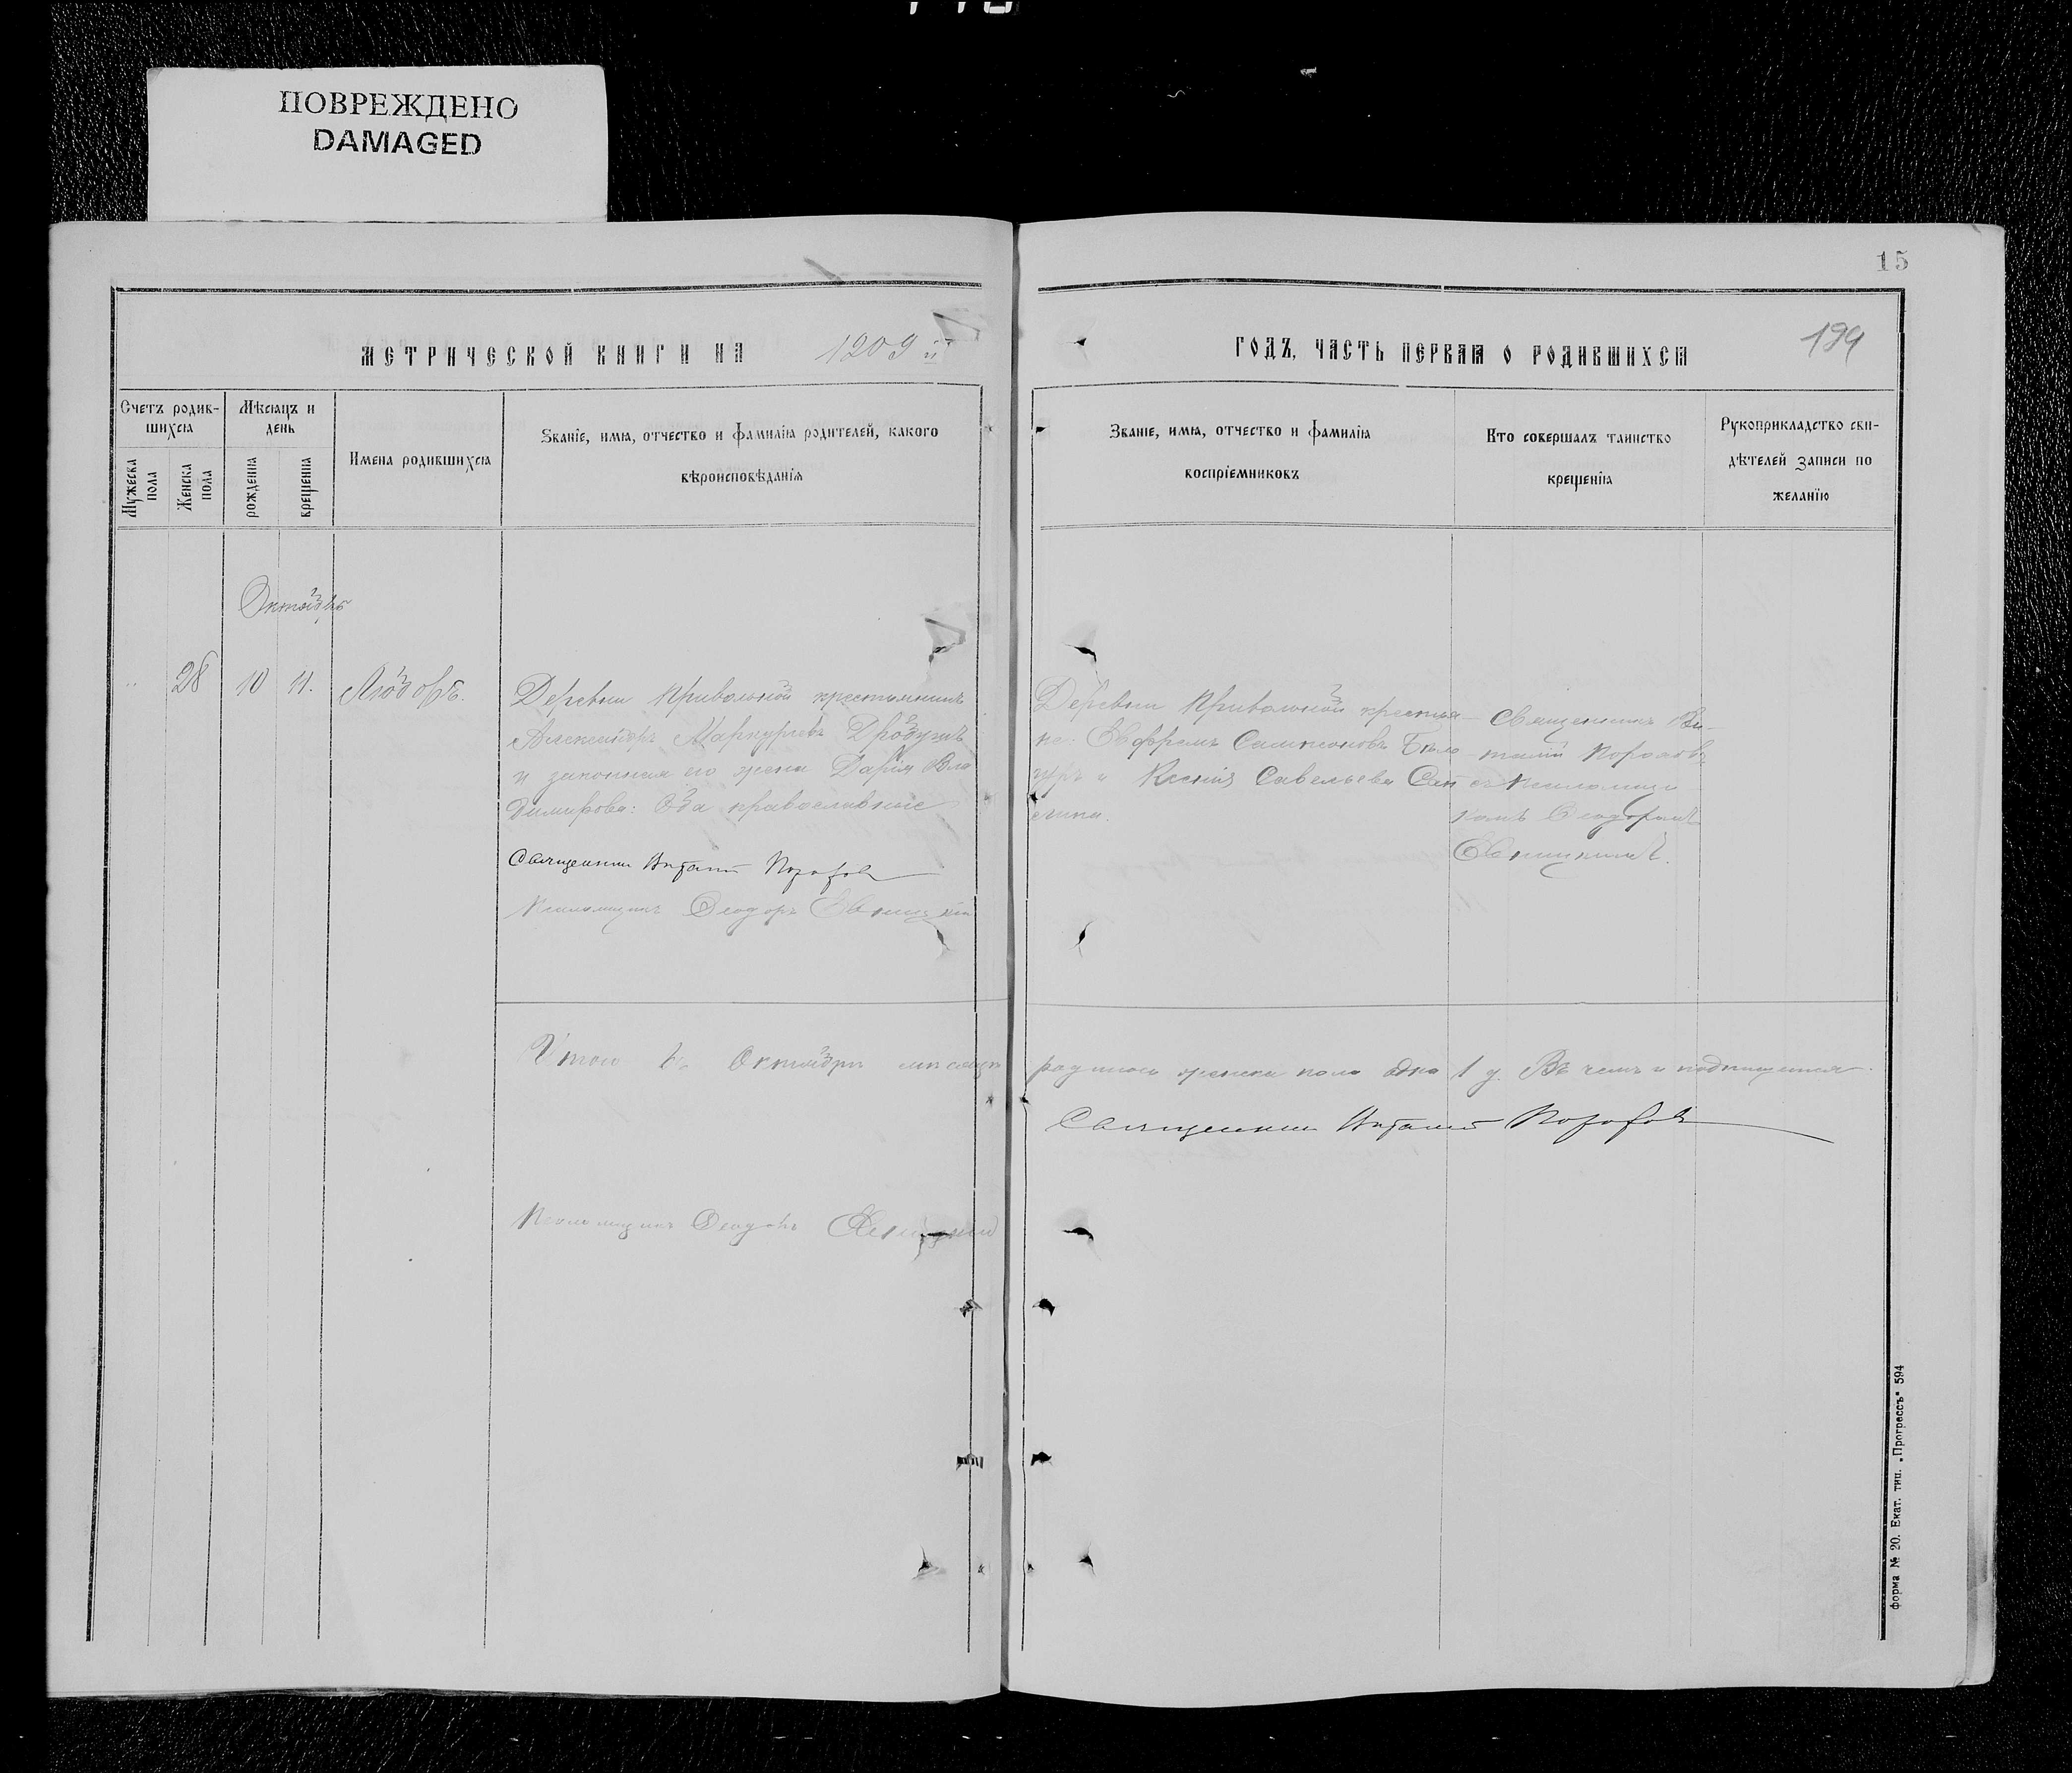 ПОВРЕЖДЕНО
DAMAGED
15
МЕТРИЧЕСКОЙ КНИГИ НА 1909 й
ГОДЪ, ЧАСТЬ ПЕРВАЯ О РОДИВШИХСЯ
194
Счетъ родив-
шихся
Мужеска
пола
Женска
пола
Мѣсяцъ и
день
рожденія
крещенія
Имена родившихся
Званіе, имя, отчество и фамилія родителей, какого
вѣроисповѣданія
Званіе, имя, отчество и фамилія
воспріемниковъ
Кто совершалъ таинство
крещенія
Рукоприкладство сви-
дѣтелей записи по
желанію
Октябрь
28 10 11. Любовь.
Деревни Привольной крестьянинъ
Александръ Меркурьевъ
и законная его жена Дарія Вла
димирова: Оба православные
Священникъ Виталій
Псаломщикъ Ѳеодоръ
Деревни Привольной крестья-
не: Евфремъ Сампсоновъ
и Ксенія Савельева
Священникъ Ви-
талій
съ псаломщи
комъ Ѳеодоромъ
Итого въ Октябрѣ мѣсяцѣ
родилось женска пола одна 1 д. Въ чемъ и подпишемся.
Священникъ Виталій
Псаломщикъ Ѳеодоръ
форма № 20. Екат. тип. „Прогрессъ" 594